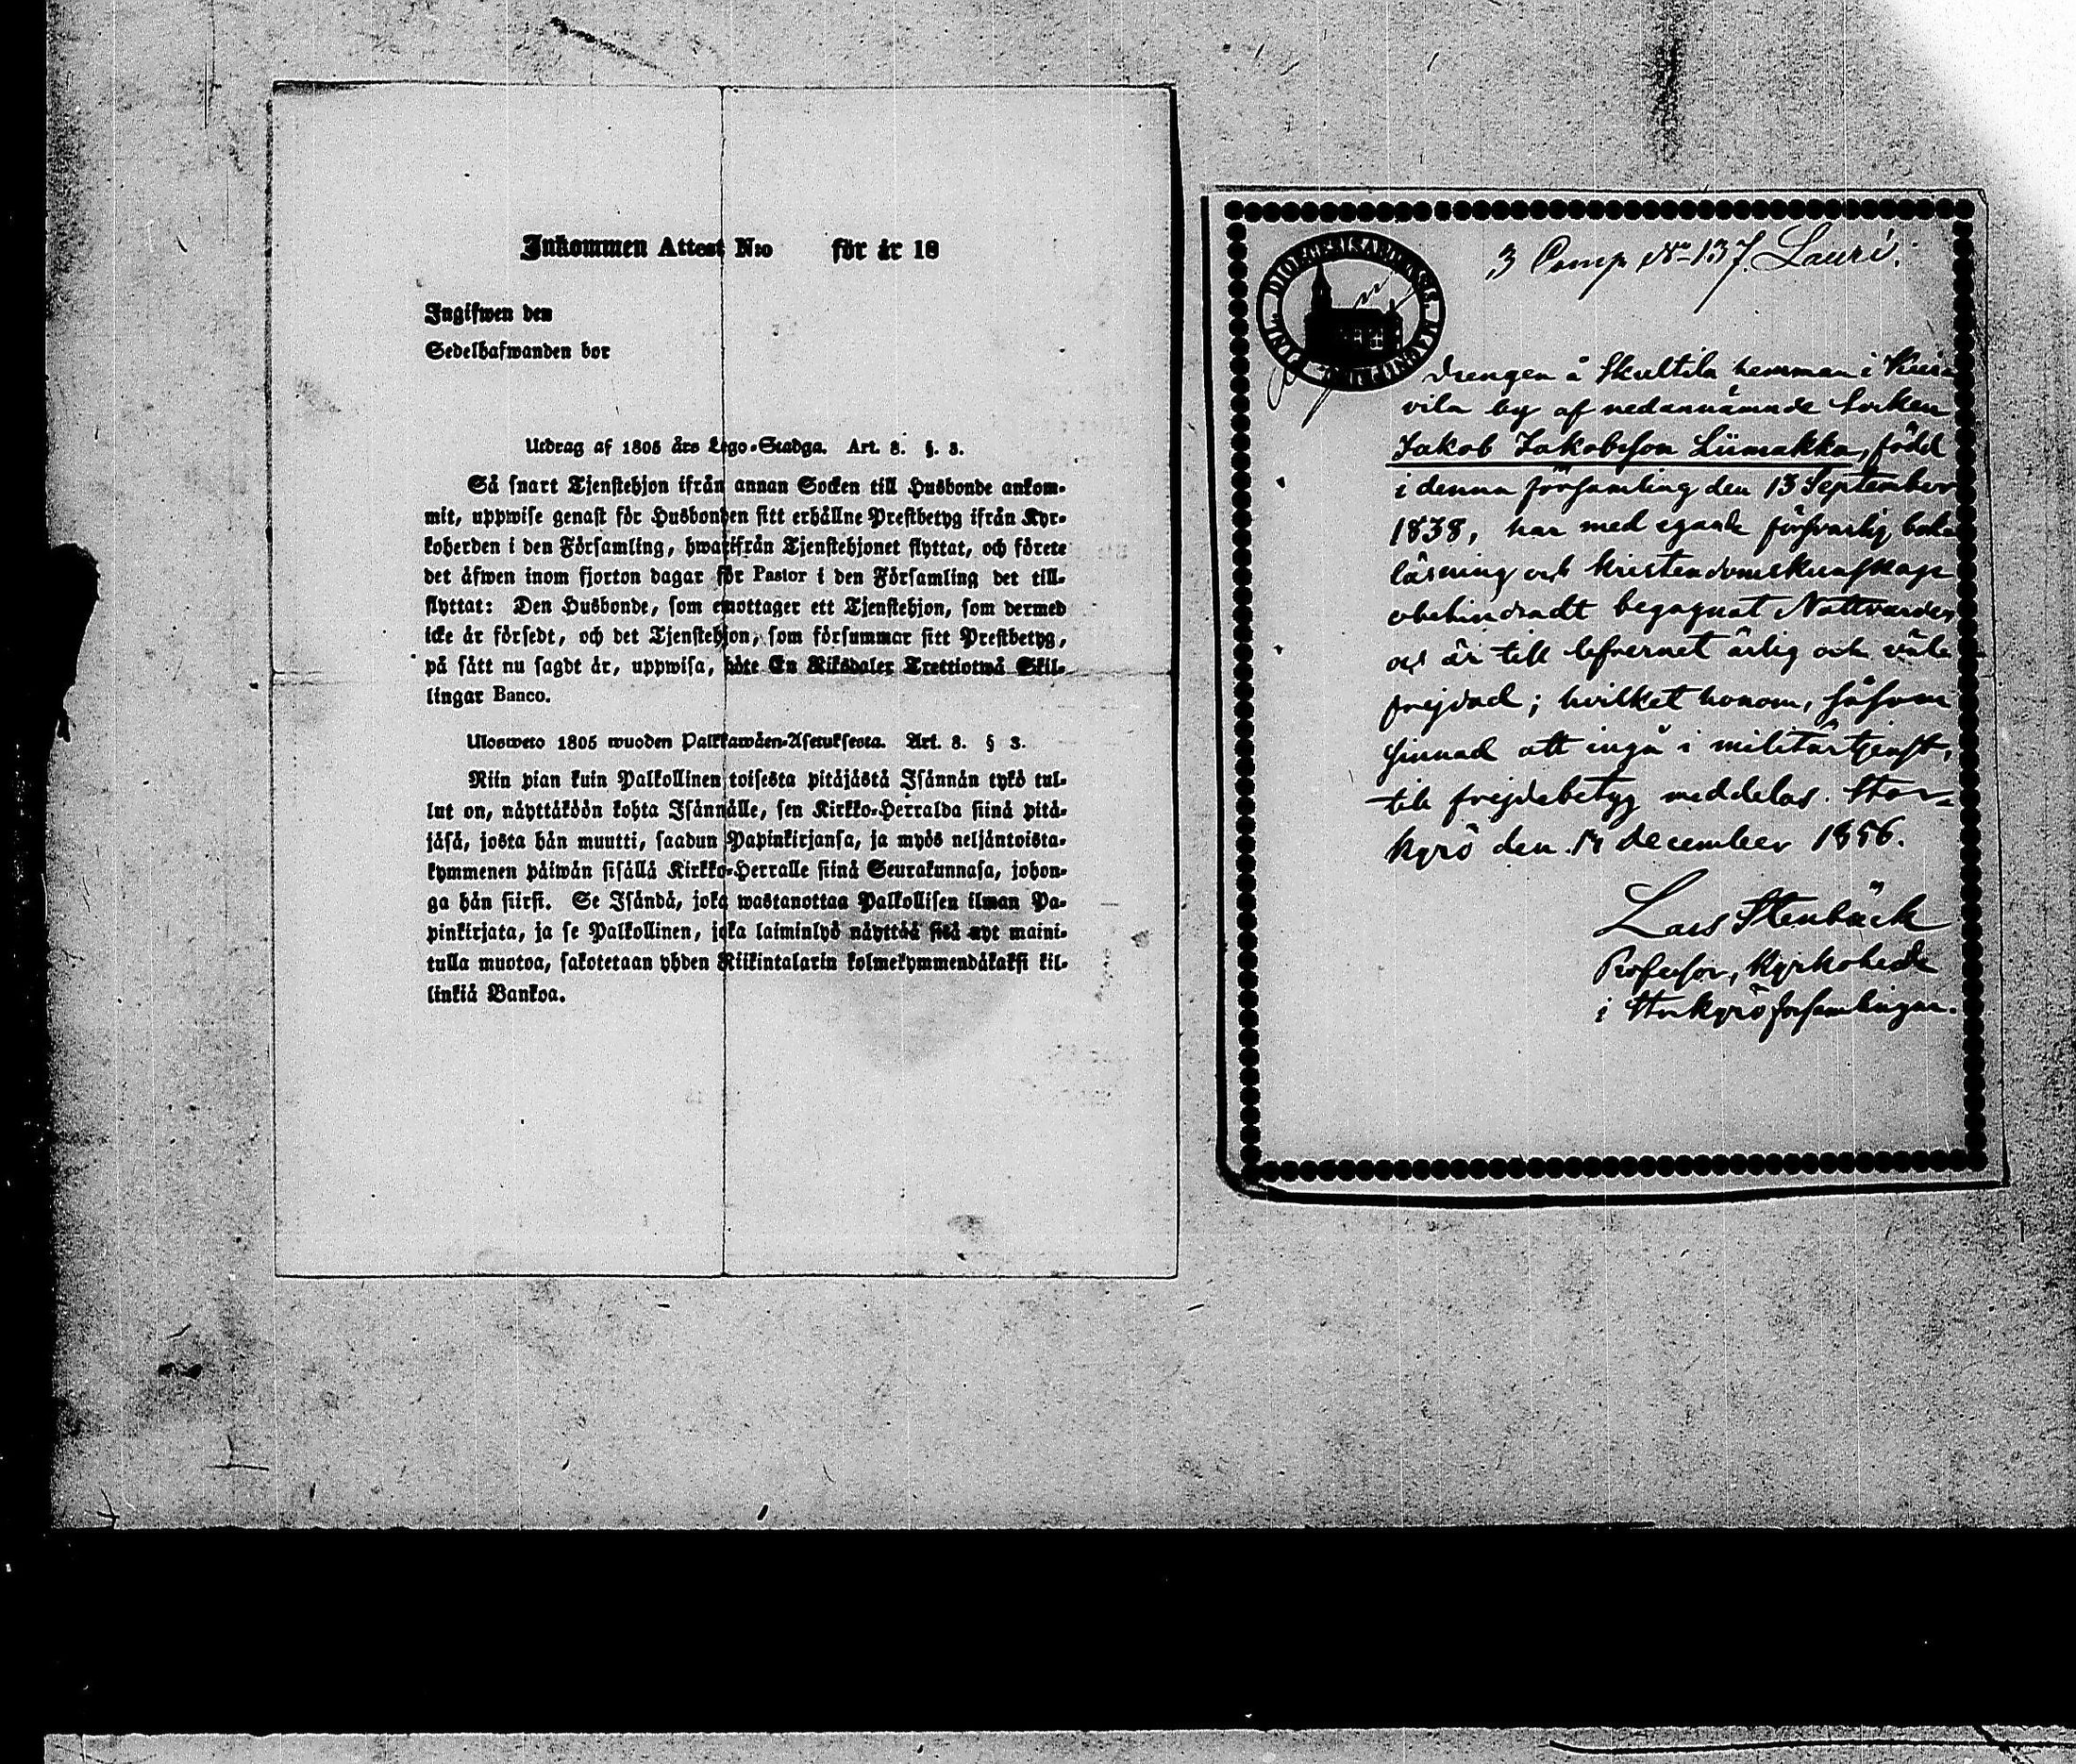 Inkommen Attest N:o för år 18
Ingifwen den
Sedelhafwanden bor
Utdrag af 1805 års Lego-Stadga. Art. 8. §. 3.
Så snart Tjenstehjon ifrån annan Socken till Husbonde ankom-
mit, uppwise genast för Husbonden sitt erhållne Prestbetyg ifrån Kyr-
koherden i den Församling, hwarifrån Tjenstehjonet flyttat, och förete
det äfwen inom fjorton dagar för Pastor i den Församling det till-
flyttat: Den Husbonde, som emottager ett Tjenstehjon, som dermed
icke är försedt, och det Tjenstehjon, som försummar sitt Prestbetyg,
på sätt nu sagdt är, uppwisa, böte En Riksdaler Trettiotwå Skil-
lingar Banco.
Ulosweto 1805 wuoden Palkkawäen-Asetuksesta. Art. 8. § 3.
Niin pian kuin Palkollinen toisesta pitäjästä Isännän tykö tul-
lut on, näyttäköön kohta Isännälle, sen Kirkko-Herralda siinä pitä-
jäsä, josta hän muutti, saadun Papinkirjansa, ja myös neljäntoista-
kymmenen päiwän sisällä Kirkko-Herralle siinä Seurakunnasa, johon-
ga hän siirsi. Se Isändä, joka wastanottaa Palkollisen ilman Pa-
pinkirjata, ja se Palkollinen, joka laiminlyö näyttää sitä nyt maini-
tulla muotoa, sakotetaan yhden Riikintalarin kolmekymmendäkaksi kil-
linkiä Bankoa.
3 Comp No 137. Lauri.
Drengen å Skultila hemman i
vila by af nedannämnde Socken
Jakob Jakobsson Liimakka, född
i denna församling den 13 September
1838, har med egande försvarlig bok-
läsning och kristendomskunskap
obehindradt begagnat Nattvarden
och är till lefvernet ärlig och väl
frejdad; hvilket honom, såsom
sinnad att ingå i militärtjenst,
till frejdebetyg meddelas. Stor-
kyrö den December 1856.
Lars Stenbäck
Professor, Kyrkoherde
i Storkyrö församlingen.